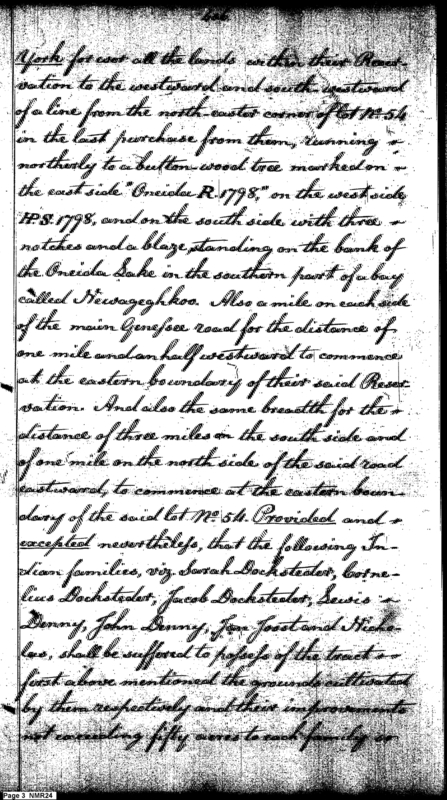 York forever all the lands within their Reser-
vation to the westward and south-westward
of a line from the north-easter corner of lot No. 54
in the last purchase from them, running
northerly to a button-wood tree marked on
the east side "Oneida R. 1798," on the west side
H.S. 1798, and on the south side with three
notches and a blaze, standing on the bank of
the Oneida Lake in the southern part of a bay
called Newageghkoo. Also a mile on each side
of the main Genesee road for the distance of
one mile and an half westward to commence
at the eastern boundary of their said Reser-
vation. And also the same breadth for the
distance of three miles on the south side and
of one mile on the north side of the said road
eastward, to commence at the eastern boun-
dary of the said lot No. 54. Provided and
excepted nevertheless, that the following In-
dian families, viz. Sarah Docksteder, Corne-
lius Dockstedor, Jacob Dockstedor, Lewis
Denny, John Denny, Jan Joost and Nicho-
las, shall be suffered to possess of the tract
first above mentioned the grounds cultivated
by them respectively and their improvements
not exceeding fifty acres to each family or
Page 3 NMR24